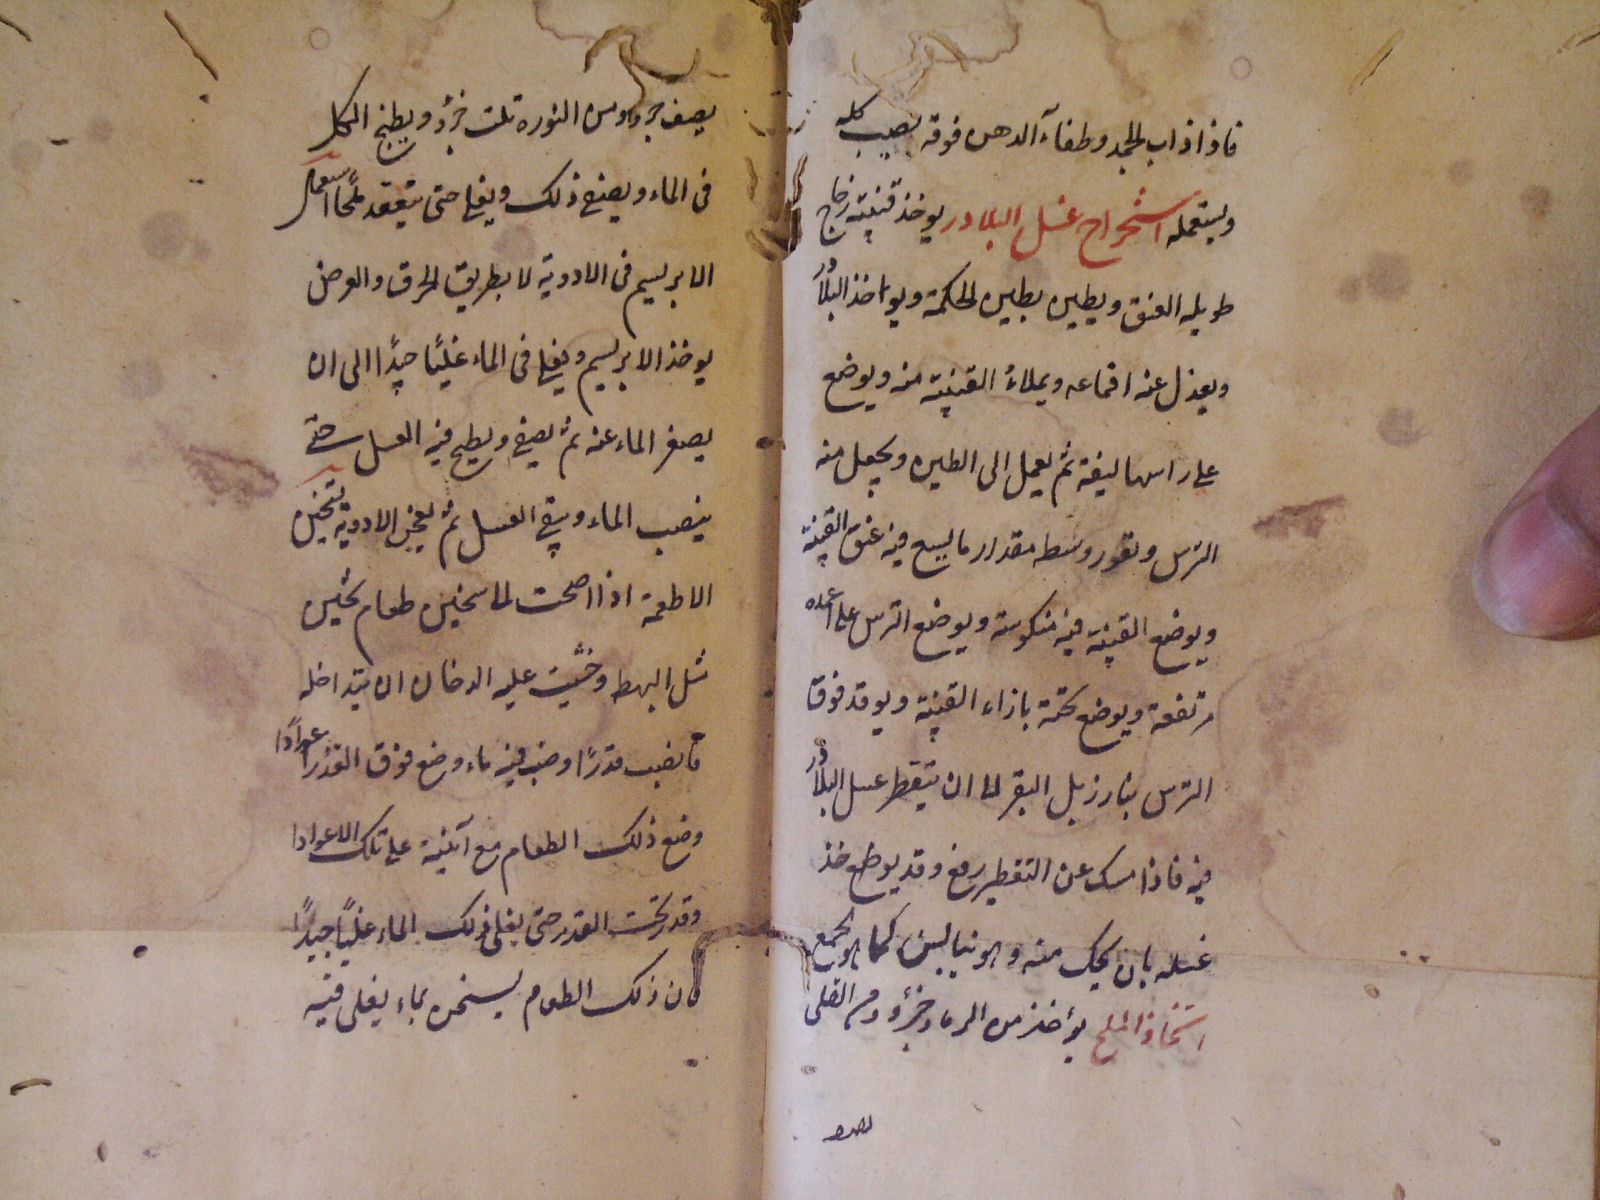 فاذا ذاب الجمد وطفاء الدهن فوقه يصيب كله
ويستعمله استخراج عسل البلادر يوخذ قنينة زجاج
طويله العنق ويطين بطين الحكمة ويوخذ البلادر
ويعزل عنه اقماعه ويملاء القنينة منه ويوضع
على راسها ليفة ثم يعمل الى الطين ويجعل منه
الترس ويقور وسطه مقدار ما يسع فيه عنق القنينة
ويوضع القنينة فيه منكوسة ويوضع الترس على اعمده
مرتفعة ويوضع تحته بازاء القنينة ويوقد فوق
الترس بنار زبل البقر الى ان يتقطر عسل البلادر
فيه فاذا امسك عن التقطير رفع وقد يوخذ
عسله بان يحك منه
اتخاذ الملح يؤخذ من الرماد جزؤ ومن القلى
نصف
نصف جزو ومن النوره ثلث جزؤ ويطبخ الكل
فى الماء ويصفى ذلك ويغلى حتى ينعقد ملحًا استعمال
الابريسم فى الادوية لا بطريق الحرق والقرض
يوخذ الابريسم ويغلى فى الماء غليًا جيدًا الى ان
يصفر الماء عنه ثم يصفى ويطبخ فيه العسل حتى
ينضب الماء ويبقى العسل ثم يعجن الادوية تسخين
الاطعمة اذا احتجت الى تسخين طعام ثخين
مثل البهط وخشيت عليه الدخان ان يتداخله
فانصب قدرًا وصب فيه ماء وضع فوق القدر اعوادًا
وضع ذلك الطعام مع آنية على تلك الاعوادا
وقد تحت القدر حتى يغلى ذلك الماء غليًا جيدًا
فان ذلك الطعام يسخن بماء يغلى فيه